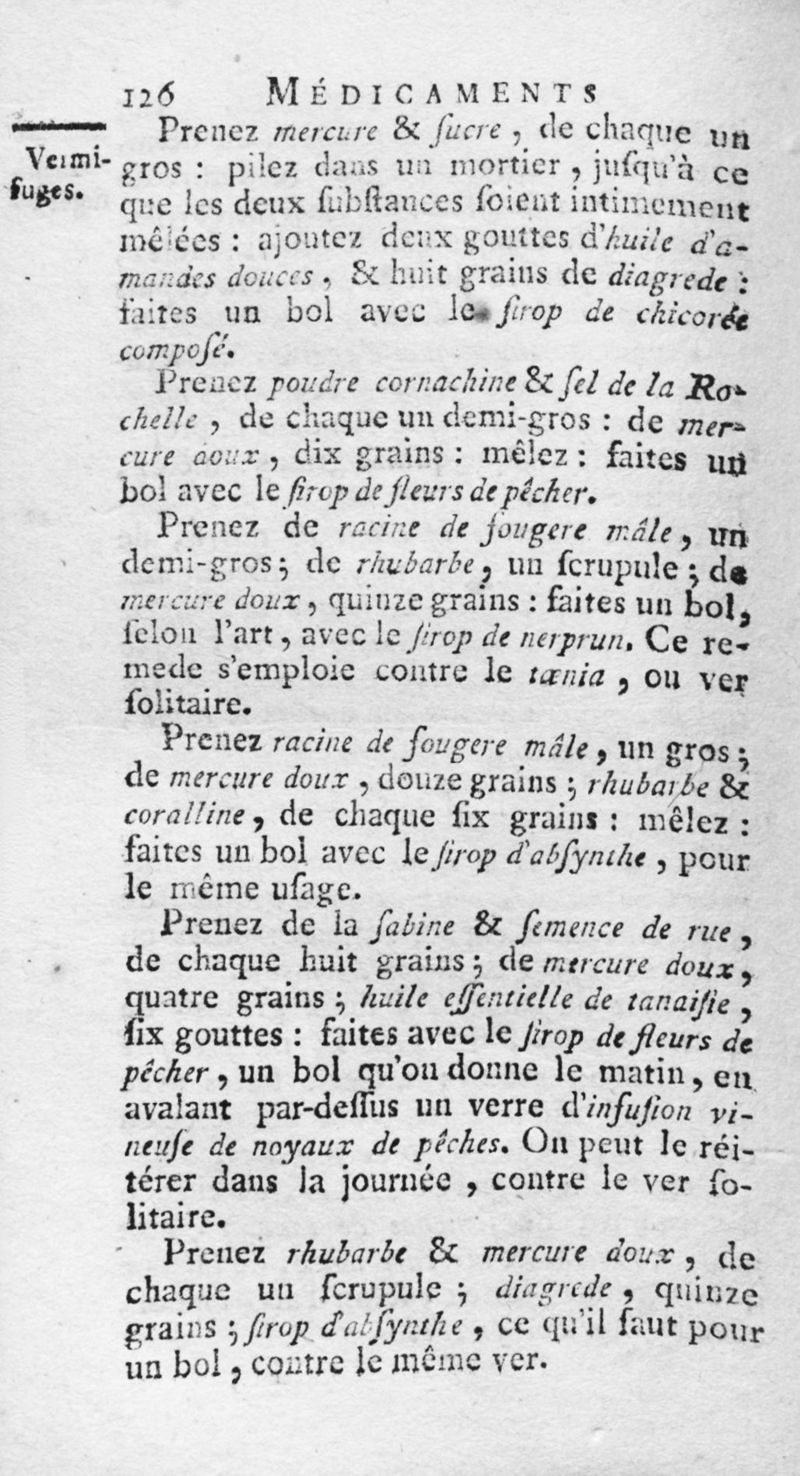 126 MÉDICAMENTS
Vermi-
fuges.
Prenez mercure & ſucre, de chaque un
gros : pilez dans un mortier, juſqu'à ce
que les deux ſubſtances ſoient intimement
mêlées : ajoutez deux gouttes d'huile d'a-
mandes douces, & huit grains de diagrede :
faites un bol avec le ſirop de chicorée
compoſé.
Prenez poudre cornachine & ſel de la Ro-
chelle, de chaque un demi-gros : de mer-
cure doux, dix grains : mêlez : faites un
bol avec le ſirop de fleurs de pêcher.
Prenez de racine de fougere mâle, un
demi-gros ; de rhubarbe, un ſcrupule ; de
mercure doux, quinze grains : faites un bol,
ſelon l'art, avec le ſirop de nerprun. Ce re-
mede s'emploie contre le tænia, ou ver
ſolitaire.
Prenez racine de fougere mâle, un gros ;
de mercure doux, douze grains ; rhubarbe &
coralline, de chaque ſix grains : mêlez :
faites un bol avec le ſirop d'abſynthe, pour
le même uſage.
Prenez de la ſabine & ſemence de rue,
de chaque huit grains ; de mercure doux,
quatre grains ; huile eſſentielle de tanaiſie,
ſix gouttes : faites avec le ſirop de fleurs de
pêcher, un bol qu'on donne le matin, en
avalant par-deſſus un verre d'infuſion vi-
neuſe de noyaux de pêches. On peut le réi-
térer dans la journée, contre le ver ſo-
litaire.
Prenez rhubarbe & mercure doux, de
chaque un ſcrupule ; diagrede, quinze
grains ; ſirop d'abſynthe, ce qu'il faut pour
un bol, contre le même ver.